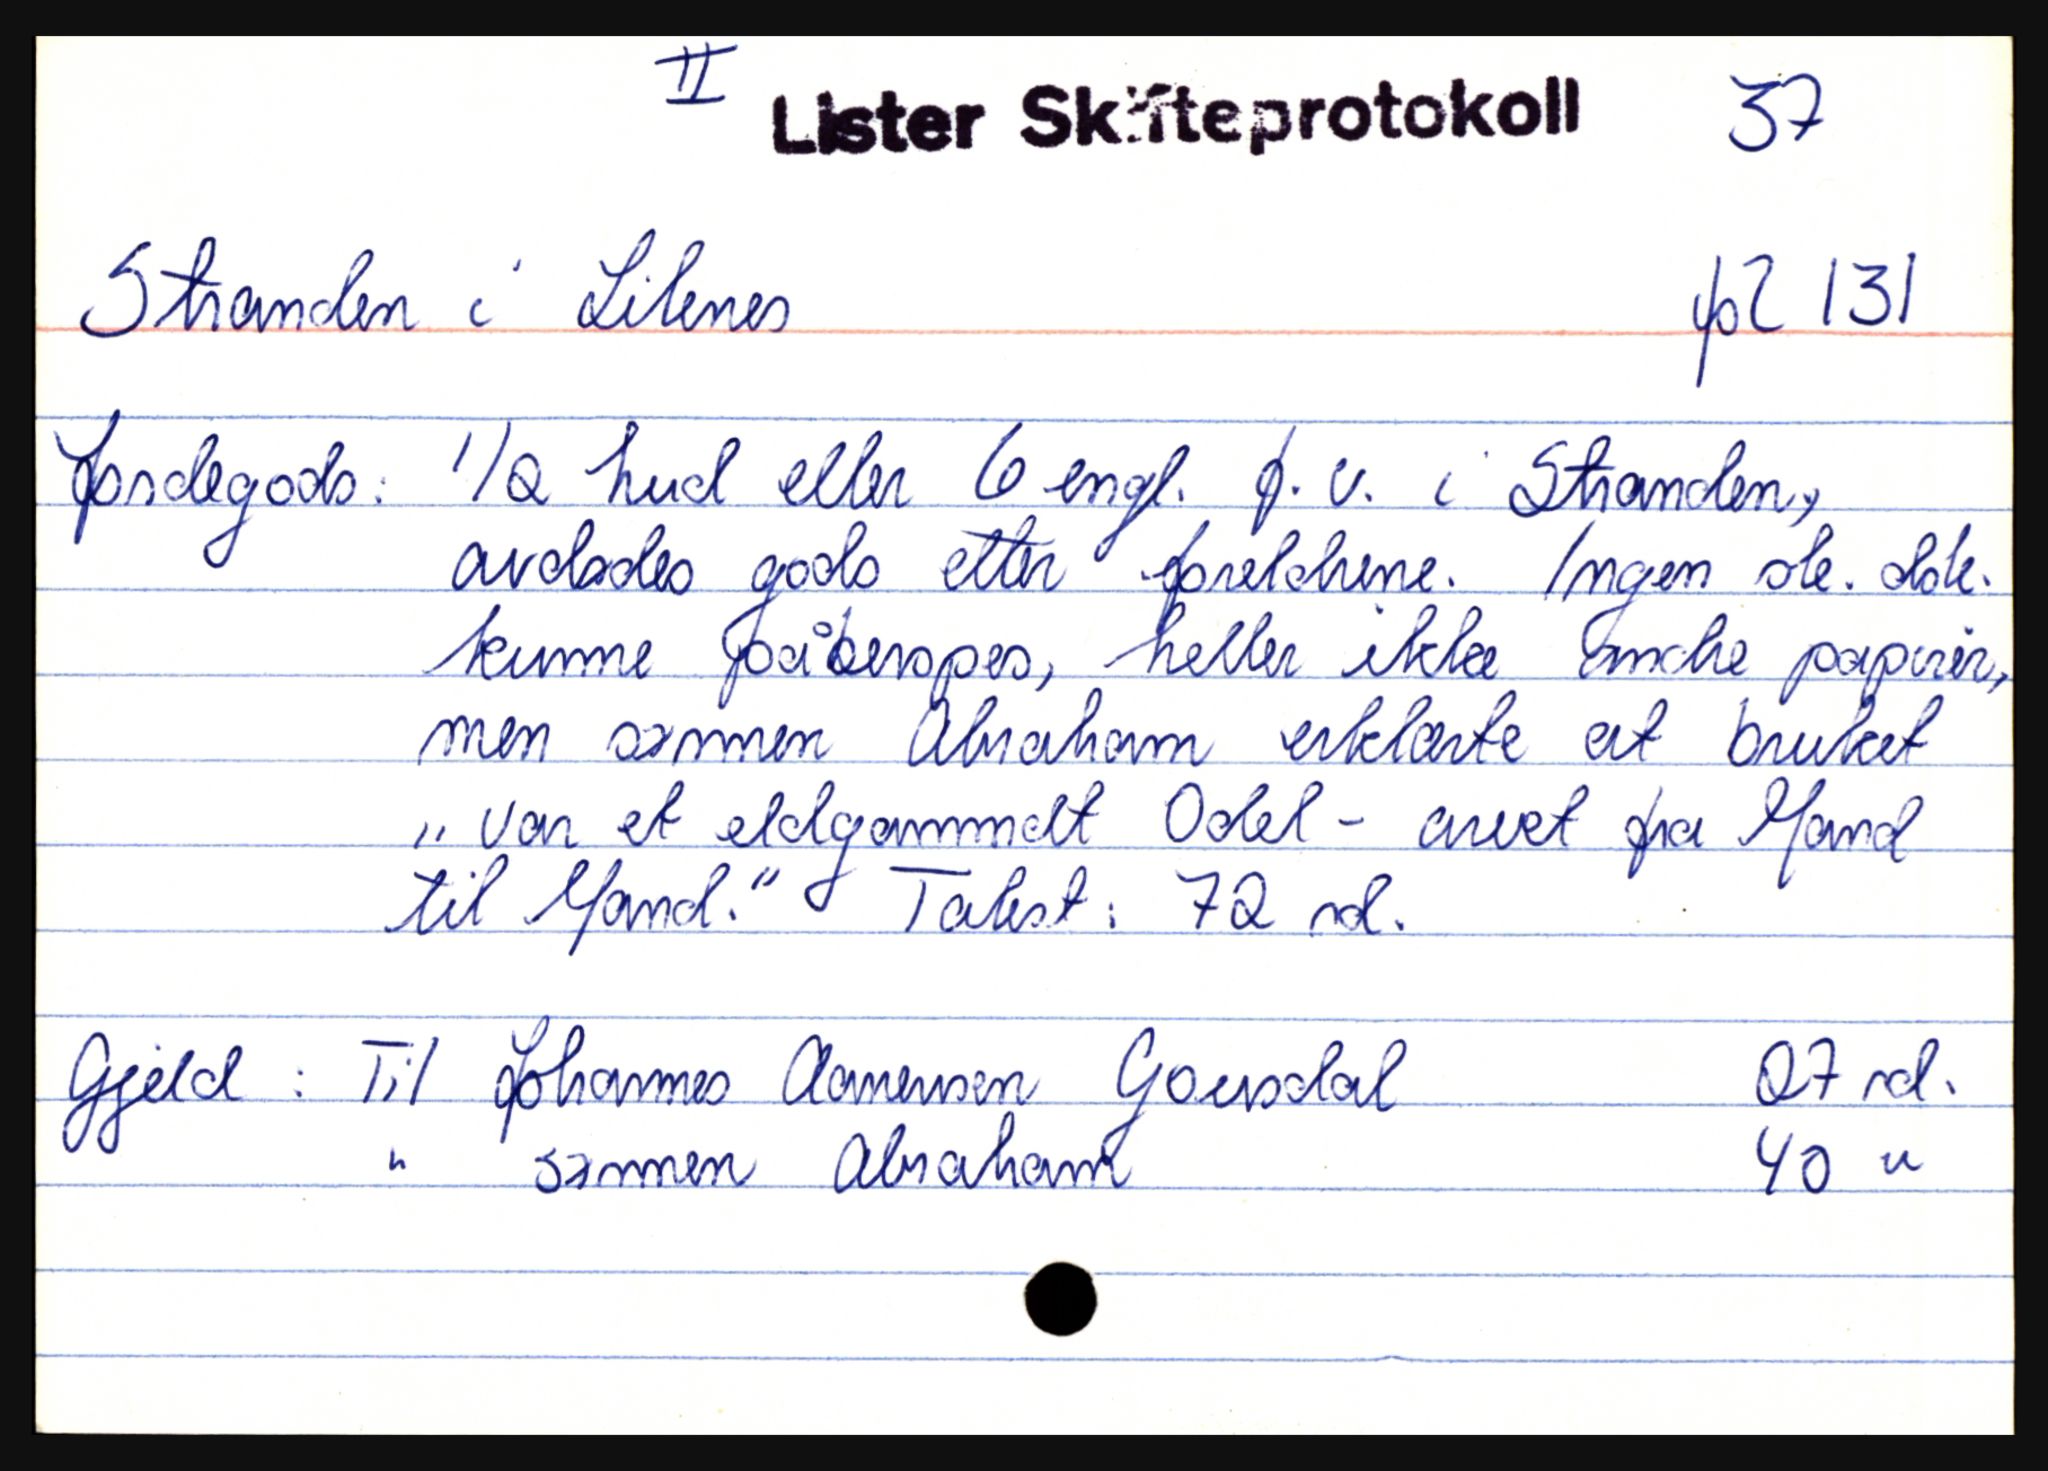 II Lister Skifteprotokoll 37
Stranden i Lilenes fol 131
Jordegods: 1/2 hud eller 6 engl. f. v. i Stranden,
avdødes gods etter foreldrene. Ingen sk. dok.
kunne påberopes, heller ikke andre papirer,
men sønnen Abraham erklærte at bruket
„ var et eldgammelt Odel - arvet fra Mand
til Mand.“ Takst: 72 rd.
Gjeld : Til Johannes Aanensen Gousdal 27 rd.
" sønnen Abraham 40 "